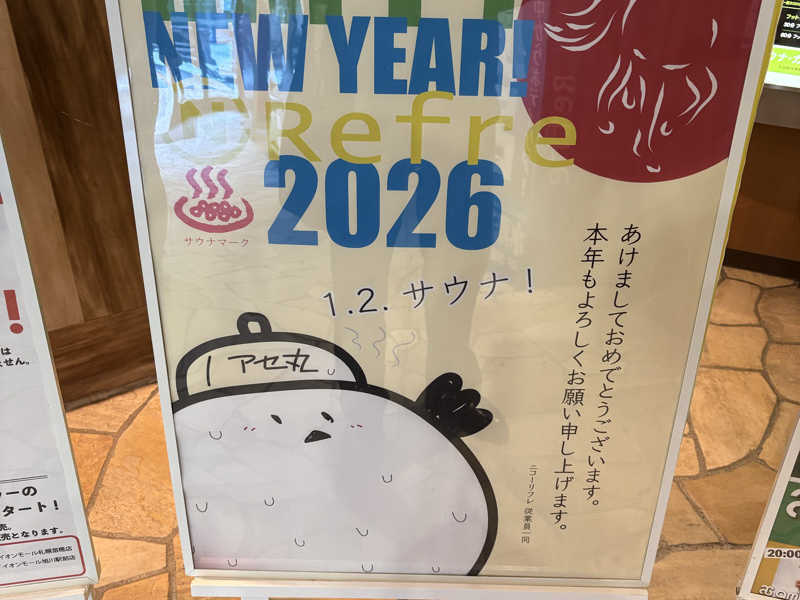 NEW YEAR!
Refre
2026
サウナマーク
1.2.サウナ！
アセ丸
あけましておめでとうございます。
本年もよろしくお願い申し上げます。
ニコーリフレ 従業員一同
!
は
ません。
ーの
タート！
売。
売となります。
イオンモール札幌苗穂店
イオンモール旭川駅前店
20:00